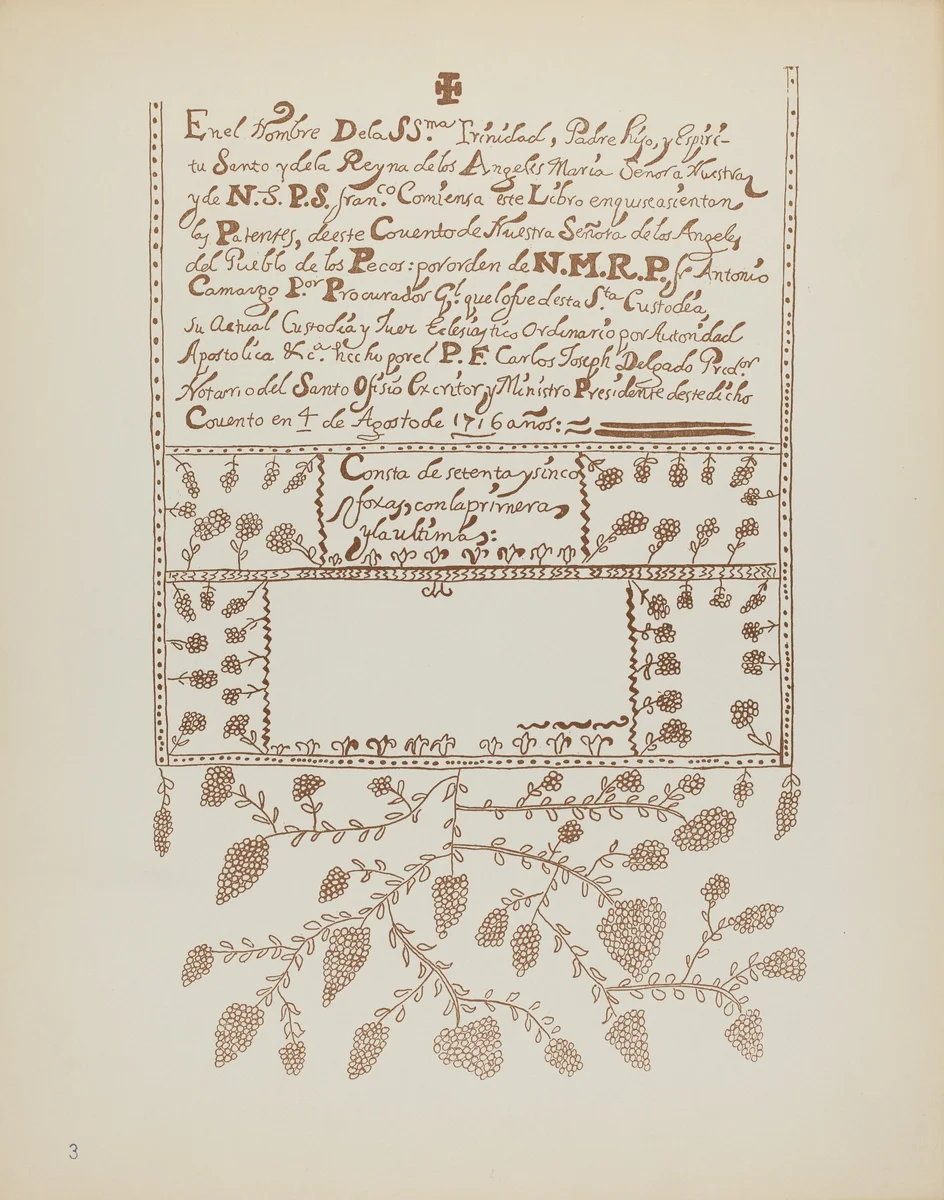 En el Nombre De la SS.ma Trinidad, Padre hijo, y Espiri-
tu Santo y de la Reyna de los Angeles Maria Señora Nuestra
y de N.S. P.S. fran.co Comiensa este Libro en quise asientan
las Patentes, de este Couento de Nuestra Señora de los Angeles
del Pueblo de los Pecos: por orden de N.M.R.P. fr Antonio
Camargo P.or Procurador G.l que lo fue desta S.ta Custodia
su Actual Custodia y Juez Eclesiastico Ordinario por Autoridad
Apostolica &c.a hecho por el P. F. Carlos Joseph Delgado Pred.or
Notario del Santo Ofisio Excritor, y Ministro Presidente deste dicho
Couento en 4 de Agosto de 1716 años:
Consta de setenta y sinco
foxas, con la primera,
y la ultima:
3